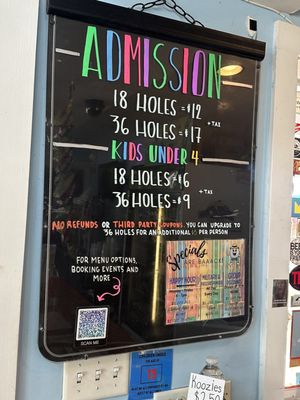 ADMISSION
18 HOLES = $12
+ TAX
36 HOLES = $17
KIDS UNDER 4
18 HOLES = $6
+ TAX
36 HOLES = $9
NO REFUNDS OR THIRD PARTY COUPONS. YOU CAN UPGRADE TO
36 HOLES FOR AN ADDITIONAL $5 PER PERSON
FOR MENU OPTIONS,
BOOKING EVENTS AND
MORE
SCAN ME
Specials
ARE BAAACK!
HAPPY HOUR
Koozies
$2.50